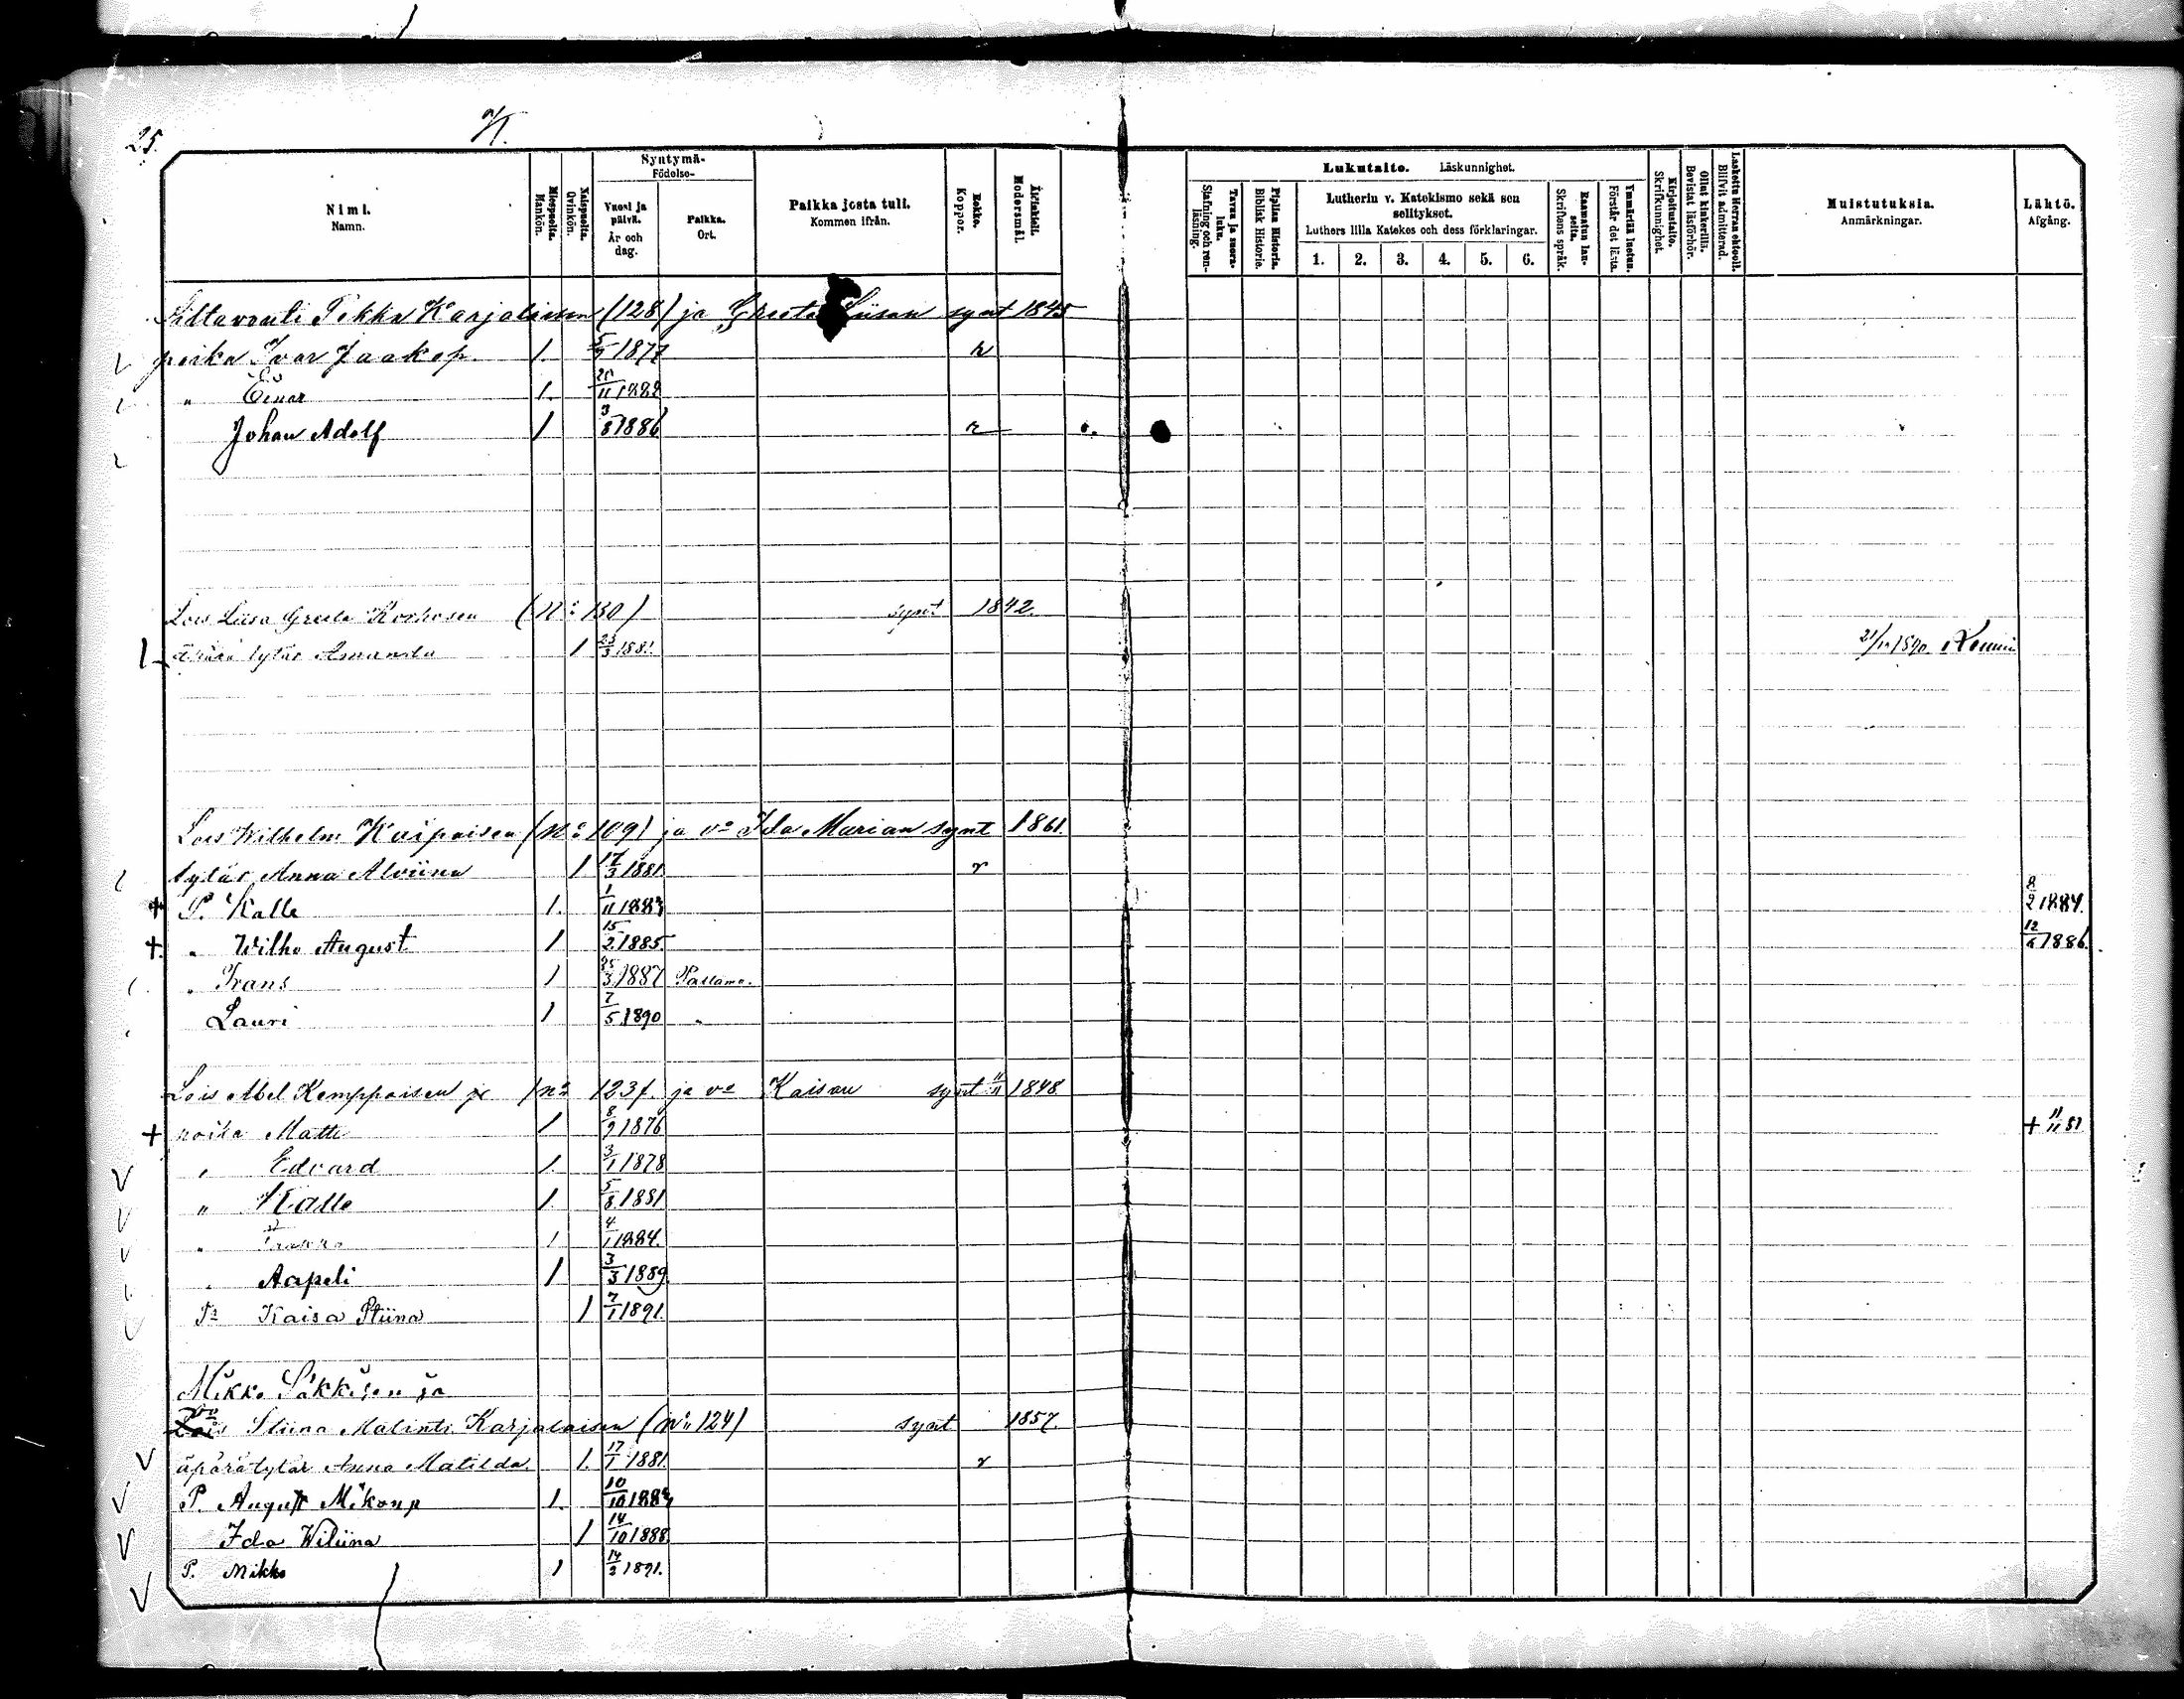 25.
K.
Nimi.
Namn.
Miespuolia.
Mankön.
Naispuolia.
Qvinkön.
Syntymä-
Födelse-
Vuosi ja päivä.
År och dag.
Paikka.
Ort.
Paikka josta tuli.
Kommen ifrån.
Rokko.
Koppor.
Äitinkieli.
Modersmål.
Lukutaito. Läskunnighet.
Tavuu ja suora-luku.
Stafning och ren-läsning.
Piplian Historia.
Biblisk Historie.
Lutherin v. Katekismo sekä sen selitykset.
Luthers lilla Katekes och dess förklaringar.
1. 2. 3. 4. 5. 6.
Raamatun lauseita.
Skriftens språk.
Ymmärtää luetun.
Förstår det lästa.
Kirjoitustaito.
Skrifkunnighet.
Ollut kinkerillä.
Bevistat läsförhör.
Laskettu Herran ehtool.
Blifvit admitterad.
Muistutuksia.
Anmärkningar.
Lähtö.
Afgång.
Siltavouti Pekka Karjalaisen (128) ja Greeta Liisan synt 1845
poika Ivar Jaakop 1. 5/9 1877 r
" Einar 1. 20/11 1882
Johan Adolf 1 3/8 1886 r
Lois Liisa Greeta Korhosen (No 130) synt 1842.
äpärä tytär Amanda 1 23/3 1881 21/12 1890.
Lois Wilhelm Kuipaisen (No 109) ja vo Ida Marian synt 1861.
tytär Anna Alviina 1 17/3 1881 r
+ P. Kalle 1. 1/11 1883 8/2 1884.
+ " Wilho August 1 15/2 1885 12/6 1886.
" Frans 1 25/3 1887 Paltamo.
Lauri 1 7/5 1890 "
Lois Abel Kemppaisen (No 123). ja vo Kaisan synt 11/11 1848
+ poika Matti 1 8/9 1876 + 11/11 81
" Edvard 1. 3/1 1878
" Kalle 1. 5/8 1881
" 1 4/1 1884.
" Aapeli 1 3/3 1889
Tr Kaisa Stiina 1 7/1 1891.
Mikko Säkkisen ja
vo Stiina Malinti Karjalaisen (No 124) synt 1857.
äpärätytär Anna Matilda. 1. 17/1 1881. r
P. August Mikonp 1. 10/10 1883
Ida Wiliina 1 14/10 1888
P. Mikko 1 14/2 1891.